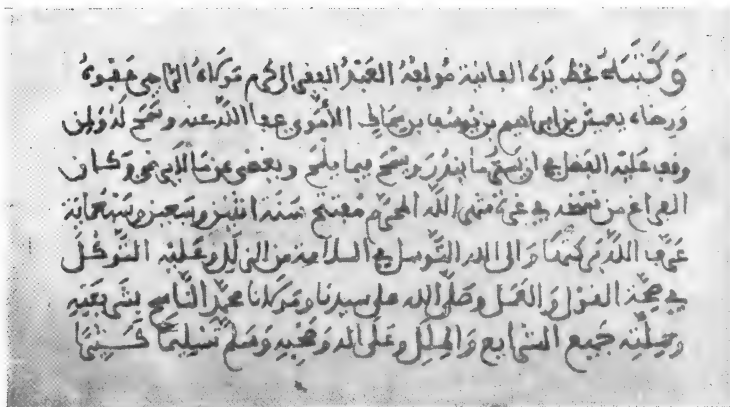 وكتبه بخط يده الفانية مؤلفه العبد الفقير إلى كرم مولاه الراجي عفوه
ورضاه يعيش بن ابراهيم بن يوسف بن سماك الأموي عفا الله عنه وسمح له ولمن
وقف عليه الفضل في ان يستر ما يندر ويسمح فيما يلمح ويغضي عن وكان
الفراغ من في غرة شهر الله المحرم مفتتح سنة اثنين وسبعين وسبعمائة
عرف الله بركتها وإلى الله التوسل في السلامة من الزلل وعليه التوكل
في صحة القول والعمل وصلى الله على سيدنا ومولانا محمد الناسخ بشريعته
وملته جميع الشرايع والملل وعلى اله وصحبه وسلم تسليما كثيرا